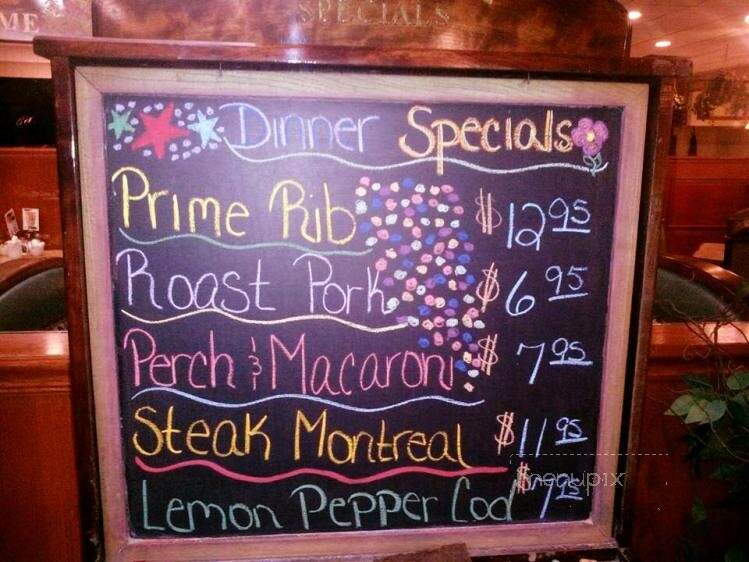 ME
SPECIALS
Dinner Specials
Prime Rib $12.95
Roast Pork $6.95
Perch & Macaroni $7.95
Steak Montreal $11.95
Lemon Pepper Cod $7.95
menupix